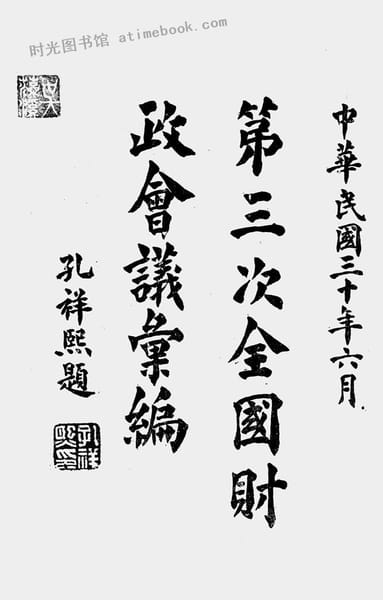 时光图书馆 atimebook.com
中華民國三十年六月
第三次全國財
政會議彙編
孔祥熙題
孔祥熙印